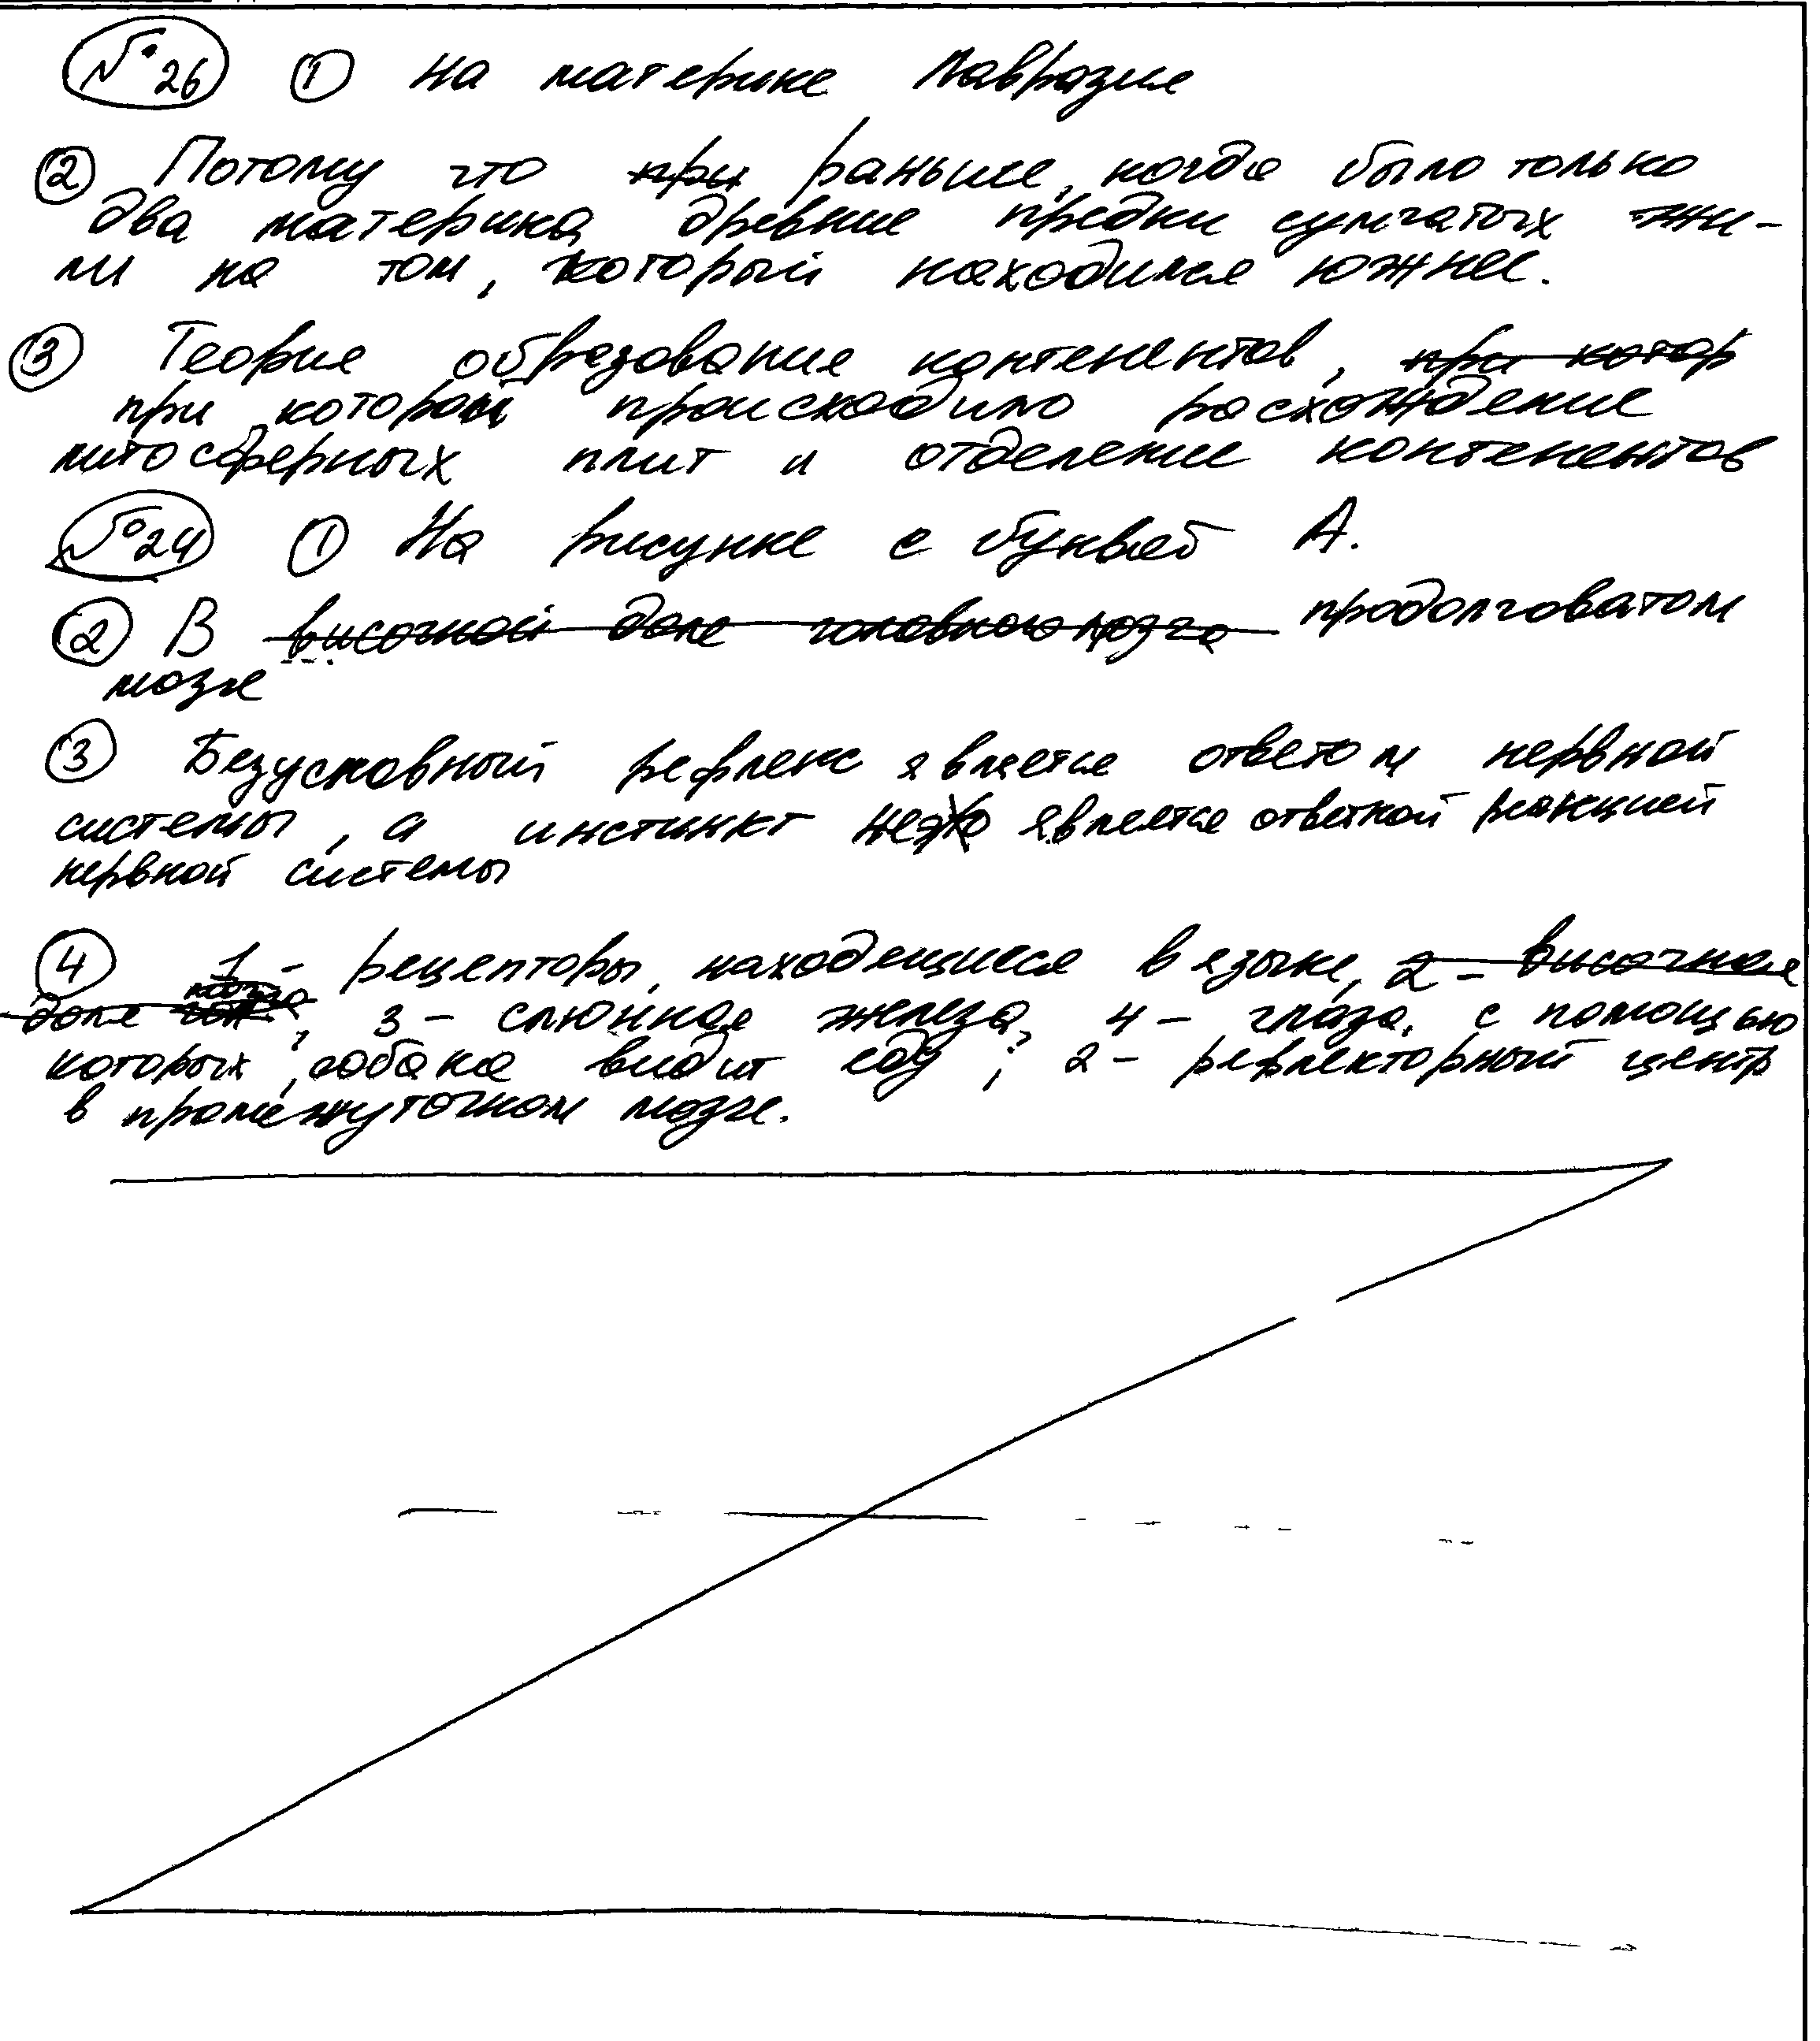 №26 ① На материке Лавразия
② Потому что при раньше, когда было только
два материка древние предки сумчатых жи-
ли на том, который находился южнее.
③ Теория образования контенентов, при котор
при которой происходило расхождение
литосферных плит и отделение контенентов
№24 ① На рисунке с буквой А.
② В височной доле головного мозга продолговатом
мозге
③ Безусловный рефлекс является ответом нервной
системы, а инстинкт является ответной реакцией
нервной системы
④ 1 - рецепторы, находящиеся в языке, 2 - височная
доля мозга, 3 - слюнная железа, 4 - глаза, с помощью
которых собака видит еду; 2 - рефлекторный центр
в промежуточном мозге.